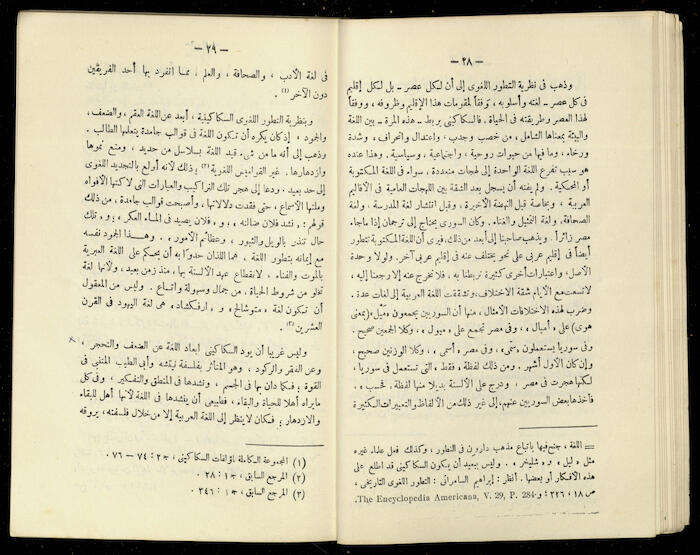 — ٢٨ —
وذهب فى نظرية التطور اللغوى إلى أن لكل عصر ــ بل لكل إقليم
فى كل عصر ــ لغته وأسلوبه ، توفقاً لمقومات هذا الإقليم وظروفه ، ووفقاً
لهذا العصر وطريقته فى الحياة . فالسكاكينى يربط ــ هذه المرة ــ بين اللغة
والبيئة بمعناها الشامل ، من خصب وجدب ، واعتدال وانحراف ، وشدة
ورخاء ، وما فيها من حيوات روحية ، واجتماعية ، وسياسية . وهذا عنده
هو سبب تفرع اللغة الواحدة إلى لهجات متعددة ، سواء فى اللغة المكتوبة
أو المحكية . ولم يفته أن يسجل بعد الشقة بين اللهجات العامية فى الأقاليم
العربية ، وبخاصة قبل النهضة الأخيرة ، وقبل انتشار لغة المدرسة ، ولغة
الصحافة، ولغة التمثيل والغناء . وكان السورى يحتاج إلى ترجمان إذا ما جاء
مصر زائراً . ويذهب صاحبنا إلى أبعد من ذلك، فيرى أن اللغة المكتوبة تتطور
أيضاً فى إقليم عربى على نحو يختلف عنه فى إقليم عربى آخر . ولولا وحدة
الأصل ، واعتبارات أخرى كثيرة تربطنا به ، فلا نخرج عنه إلا رجعنا إليه ،
لاتسعت مع الأيام شقة الاختلاف، وتشققت اللغة العربية إلى لغات عدة .
وضرب لهذه الاختلافات الأمثال ، منها أن السوريين يجمعون «ميل» (بمعنى
هوى) على «أميال» ، وفى مصر تجمع على «ميول» ، وكلا الجمعين صحيح .
وفى سوريا يستعملون «سمّى» ، وفى مصر «أسمى» ، وكلا الوزنين صحيح ،
وإن كان الأول أشهر . ومن ذلك لفظة «فقط» التى تستعمل فى سوريا ،
لكنها هجرت فى مصر ، ودرج على الألسنة بديلا منها لفظة «فحسب» ،
فأخذها بعض السوريين عنهم. إلى غير ذلك من الألفاظ والتعبيرات الكثيرة
= اللغة ، جنح فيها باتباع مذهب دارون فى التطور ، وكذلك فعل علماء غيره
مثل « ليل » و« شليخر » . وليس ببعيد أن يكون السكاكينى قد اطلع على
هذه الأفكار أو بعضها. أنظر : إبراهيم السامرائى : التطور اللغوى التاريخى ،
ص ١٨ ، ٢٢٦ ؛ و The Encyclopedia Americana, V. 29, P. 284.
— ٢٩ —
فى لغة الأدب ، والصحافة ، والعلم ، مما انفرد بها أحد الفريقين
دون الآخر (١) .
وبنظرية التطور اللغوى السكاكينية ، أبعد عن اللغة العقم ، والضعف،
والجمود ، إذ كان يكره أن تكون اللغة فى قوالب جامدة يتعلمها الطالب .
وذهب إلى أنه ما من شىء قيد اللغة بسلاسل من حديد ، ومنع نموها
وازدهارها . غير القواميس اللغوية (٢) ؛ ذلك لأنه أولع بالتجديد اللغوى
إلى حد بعيد . ودعا إلى هجر تلك التراكيب والعبارات التى لاكتها الأفواه
وملتها الأسماع ، حتى فقدت دلالاتها ، وأصبحت قوالب جامدة ، من ذلك
قولهم : « نشد فلان ضالته » ، و « فلان يصيد فى الماء العكر » ، و « تلك
حال تنذر بالويل والثبور ، وعظائم الأمور » . وهذا الجمود نفسه
مع إيمانه بتطور اللغة . هما اللذان حدوا به أن يحكم على اللغة العبرية
بالموت والفناء ، لانقطاع عهد الألسنة بها ، منذ زمن بعيد ، ولأنها لغة
تخلو من شروط الحياة ، من جمال وسهولة واتساع . وليس من المعقول
أن تكون لغة « متوشالح » و « ارفكشاد » هى لغة اليهود فى القرن
العشرين (٣) .
وليس غريبا أن يود السكاكينى ابعاد اللغة عن الضعف والتحجر ،
وعن الفقر والركود ، وهو المتأثر بفلسفة نيتشه وأبى الطيب المتنبى فى
القوة ؛ فكما دان بها فى الجسم ، ونشدها فى المنطق والتفكير ، وفى كل
مايراه أهلا للحياة والبقاء ، فطبيعى أن ينشدها فى اللغة لأنها أهل للبقاء
والازدهار ؛ فكان لا ينظر إلى اللغة العربية إلا من خلال فلسفته ، يروقه
(١) المجموعة الكاملة لمؤلفات السكاكينى ، ج٢ : ٧٤ – ٧٦ .
(٢) المرجع السابق ، ج١ : ٢٨ .
(٣) المرجع السابق ، ج١ : ٣٤٦ .